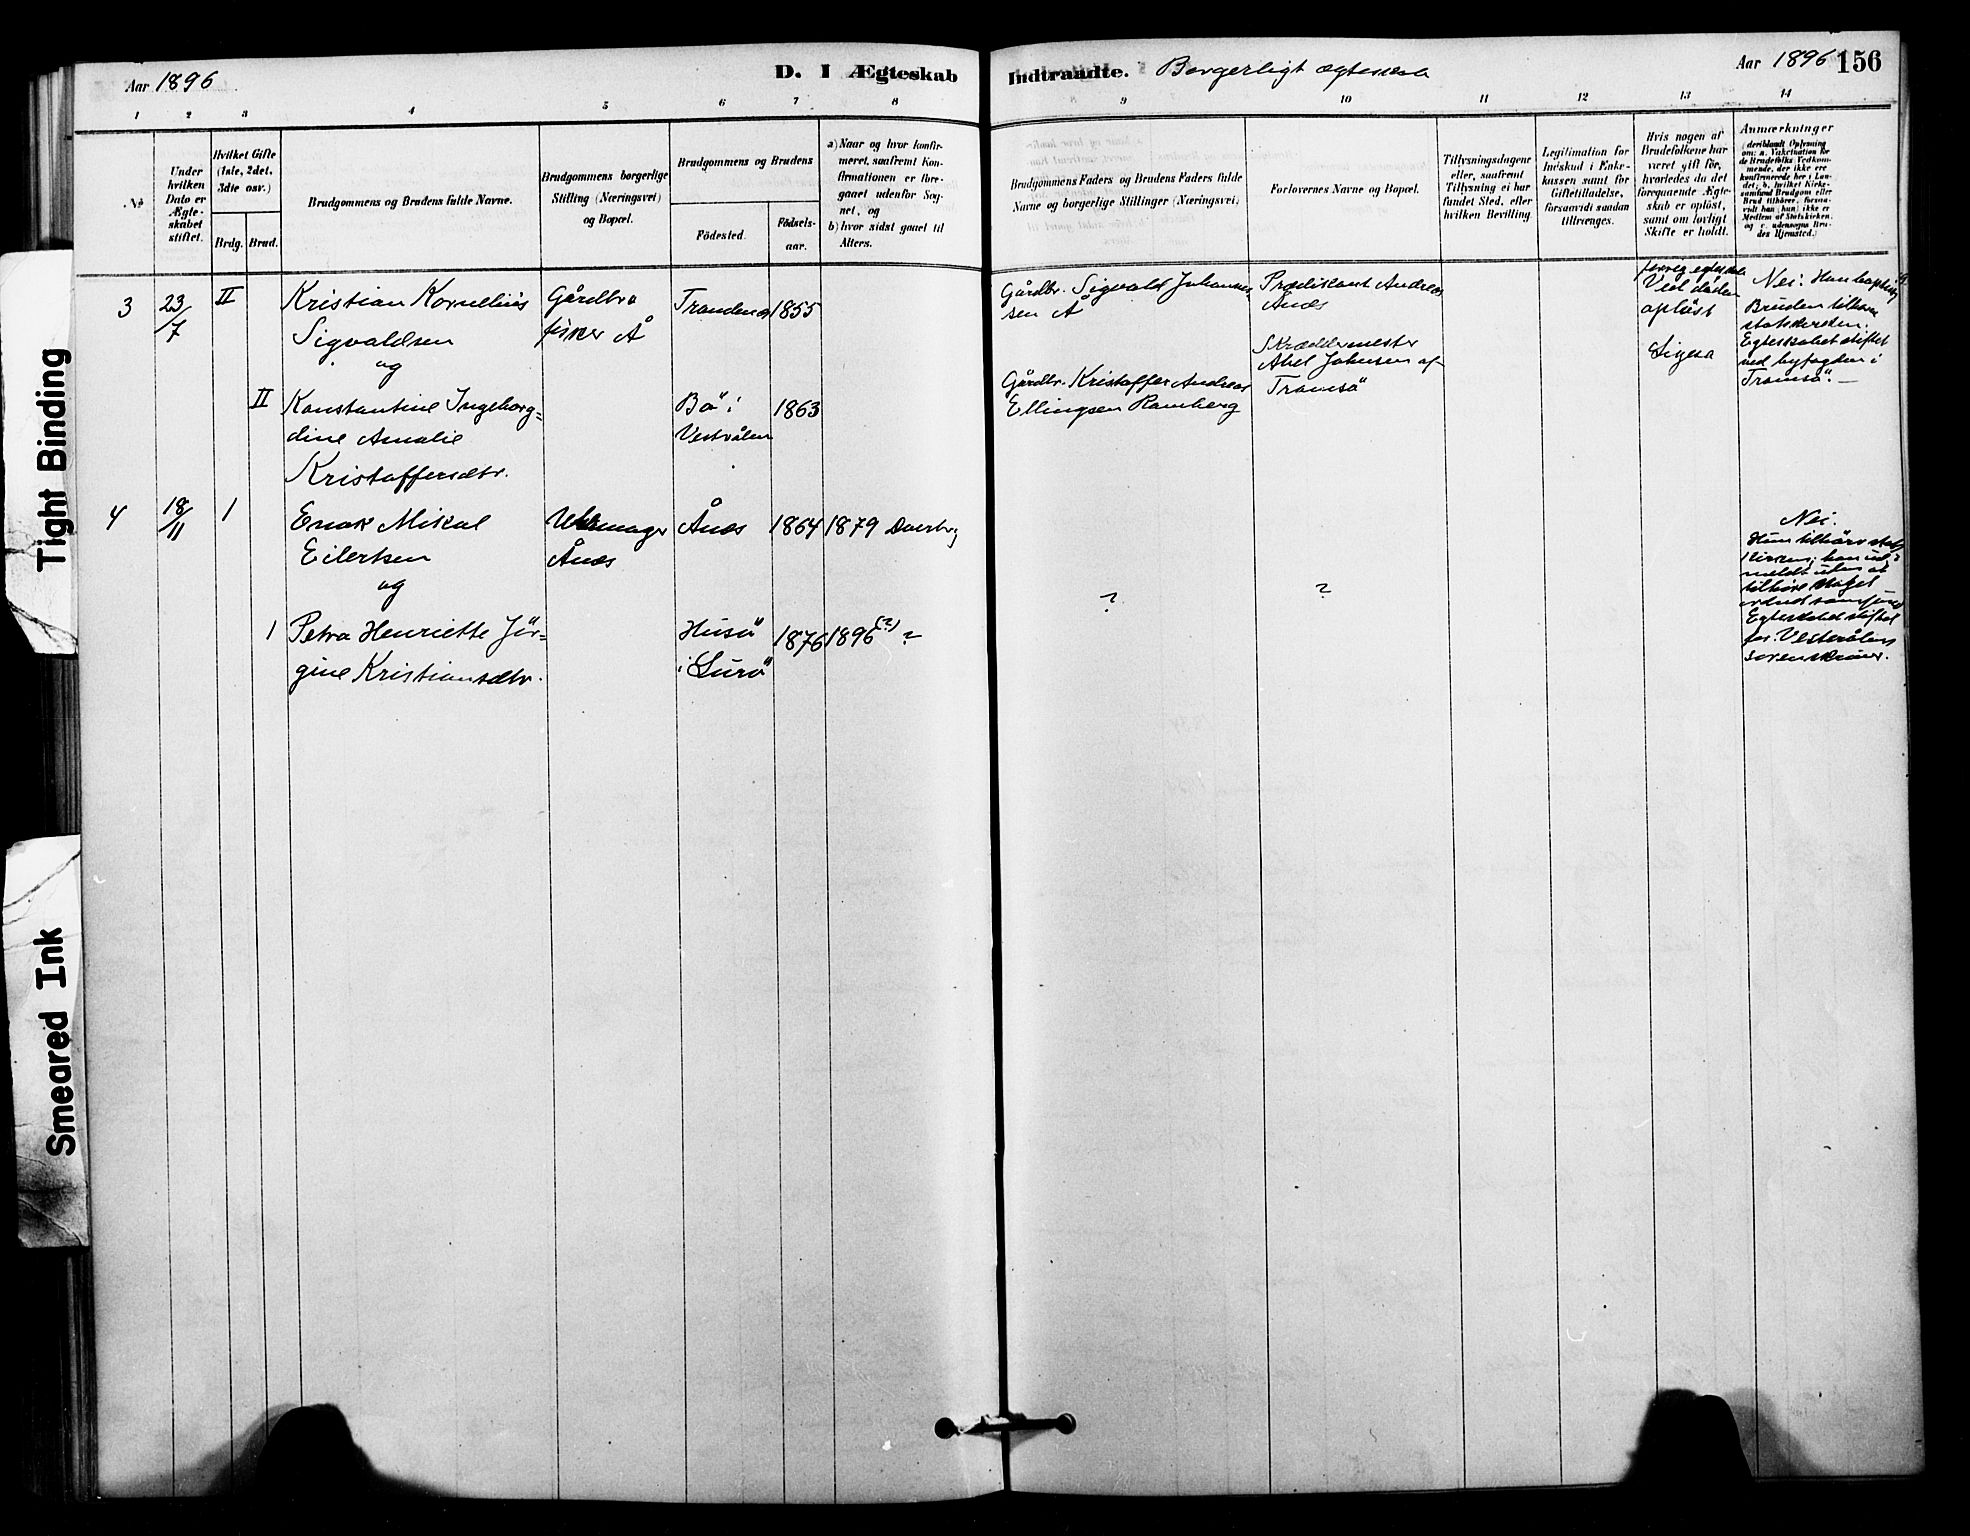 Aar 1896
D. I Ægteskab
Indtraadte. Borgerligt ægteskab
Aar 1896
156
1 2 3 4 5 6 7 8
9 10 11 12 13 14
№
Under
hvilken
Dato er
Ægte-
skabet
stiftet.
Hvilket Gifte
(1ste, 2det,
3die osv.)
Brdg. Brud.
Brudgommens og Brudens fulde Navne.
Brudgommens borgerlige
Stilling (Næringsvei)
og Bopæl.
Brudgommens og Brudens
Födested.
Födsels-
aar.
a) Naar og hvor konfir-
meret, saafremt Kon-
firmationen er fore-
gaaet udenfor Sog-
net, og
b) hvor sidst gaaet til
Alters.
Brudgommens Faders og Brudens Faders fulde
Navne og borgerlige Stillinger (Næringsvei)
Forlovernes Navne og Bopæl.
Tillysningsdagene
eller, saafremt
Tillysning ei har
fundet Sted, efter
hvilken Bevilling.
Legitimation for
Indskud i Enke-
kassen samt for
Giftetilladelse,
forsaavidt saadan
tiltrænges.
Hvis nogen af
Brudefolkene har
været gift för,
hvorledes da det
foregaaende Ægte-
skab er oplöst,
samt om lovligt
Skifte er holdt.
Anmærkninger
(deriblandt Oplysning
om: a. Vakcination for
de Brudefolks Vedkom-
mende, der ikke ere
konfirmerede her i Lan-
det; b. hvilket Kirke-
samfund Brudgom eller
Brud tilhörer, forsaa-
vidt han (hun) ikke er
Medlem af Statskirken,
og c. udensogns Bru-
des Hjemsted.)
3
23/7
II
Kristian Kornelius
Sigvaldsen
og
Gårdbr
fisker Å
Trondenæs
1855
Gårdbr. Sigvald Johannes-
sen Å
Prædikant Andreas
Anæs
Skræddermester
Abel Johnsen af
Tromsö
forrig egteskab
Ved døden
opløst
Ligesa
Nei. Han baptist
Bruden tilhører
statskirken.
Egteskabet stiftet
ved byfogden i
Tromsö. —
II
Konstantine Ingeborg-
dine Amalie
Kristoffersdtr.
Bö i
Vestrålen
1863
Gårdbr. Kristoffer Andreas
Ellingsen Ramberg
4
18/11
1
Enok Mikal
Eilertsen
og
Uhrmager
Ånæs
Ånæs
1864
1879 Dverberg
?
?
Nei.
Hun tilhører stats
kirken; han ud-
meldt uten at
tilhøre noget
ordnet samfund
Egteskabet stiftet
for Vesterålens
sorenskriver.
1
Petra Henriette Jör-
gine Kristiansdtr.
Husö
i Lurö
1876
1896 (?) ?
Tight Binding
Smeared Ink